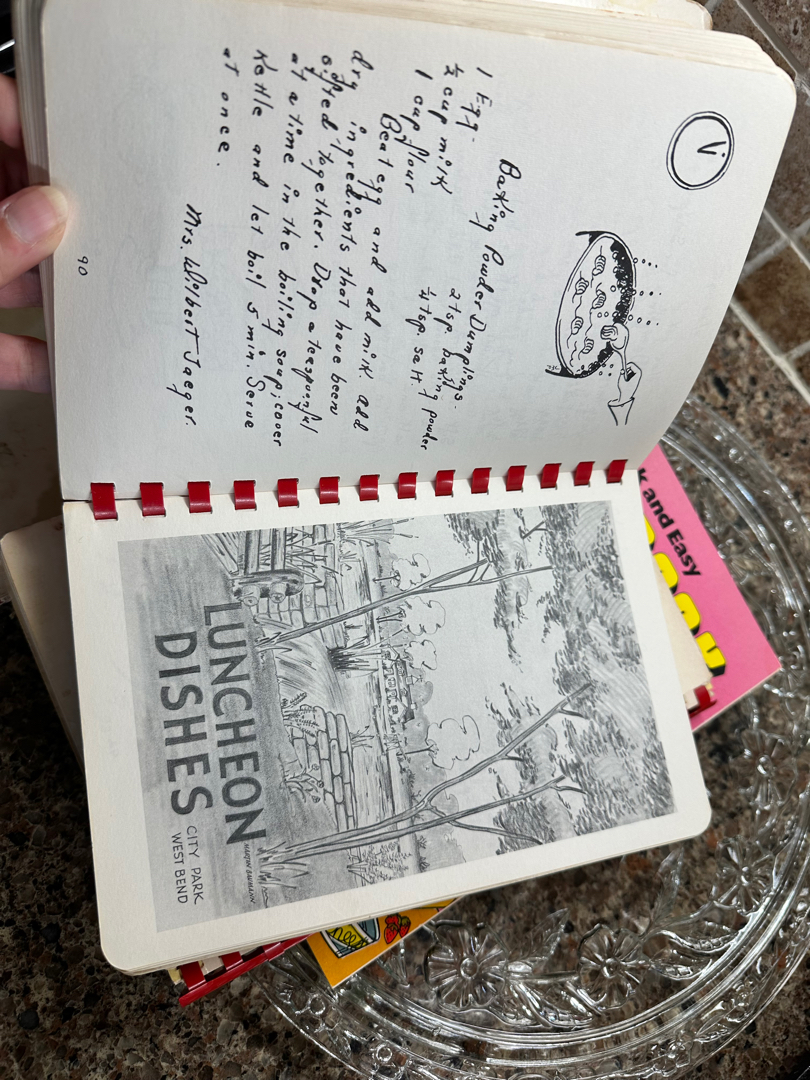 V
Baking Powder Dumplings.
1 Egg. 2 tsp baking powder
½ cup milk ¼ tsp salt.
1 cup flour
Beat egg and add milk add
dry ingredients that have been
sifted together. Drop a teaspoonful
at a time in the boiling soup; cover
Kettle and let boil 5 min. Serve
at once.
Mrs. Wilbert Jaeger.
90
LUNCHEON
DISHES
CITY PARK
WEST BEND
and Easy